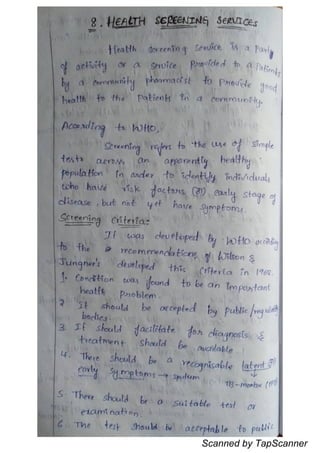 8. HEALTH SCREENING SERVICES
Health screening service is a part
of activity or a service provided to a patients
by a community pharmacist to provide good
health to the patients in a community.
According to WHO,
Screening refers to the use of simple
tests across an apparently healthy
population in order to identify individuals
who have risk factors (or) early stage of
disease, but not yet have symptoms.
Screening Criteria:-
It was developed by WHO according
to the recommendations of Wilson &
Jungner's developed this criteria in 1968.
1. Condition was found to be an important
health problem.
2 It should be accepted by public / regulatory
bodies.
3. It should facilitate for diagnosis &
treatment should be available.
4. There should be a recognisable latent (or)
early symptoms → sputum
TB-
5. There should be a suitable test or
examination.
6. The test should be acceptable to public
Scanned by TapScanner